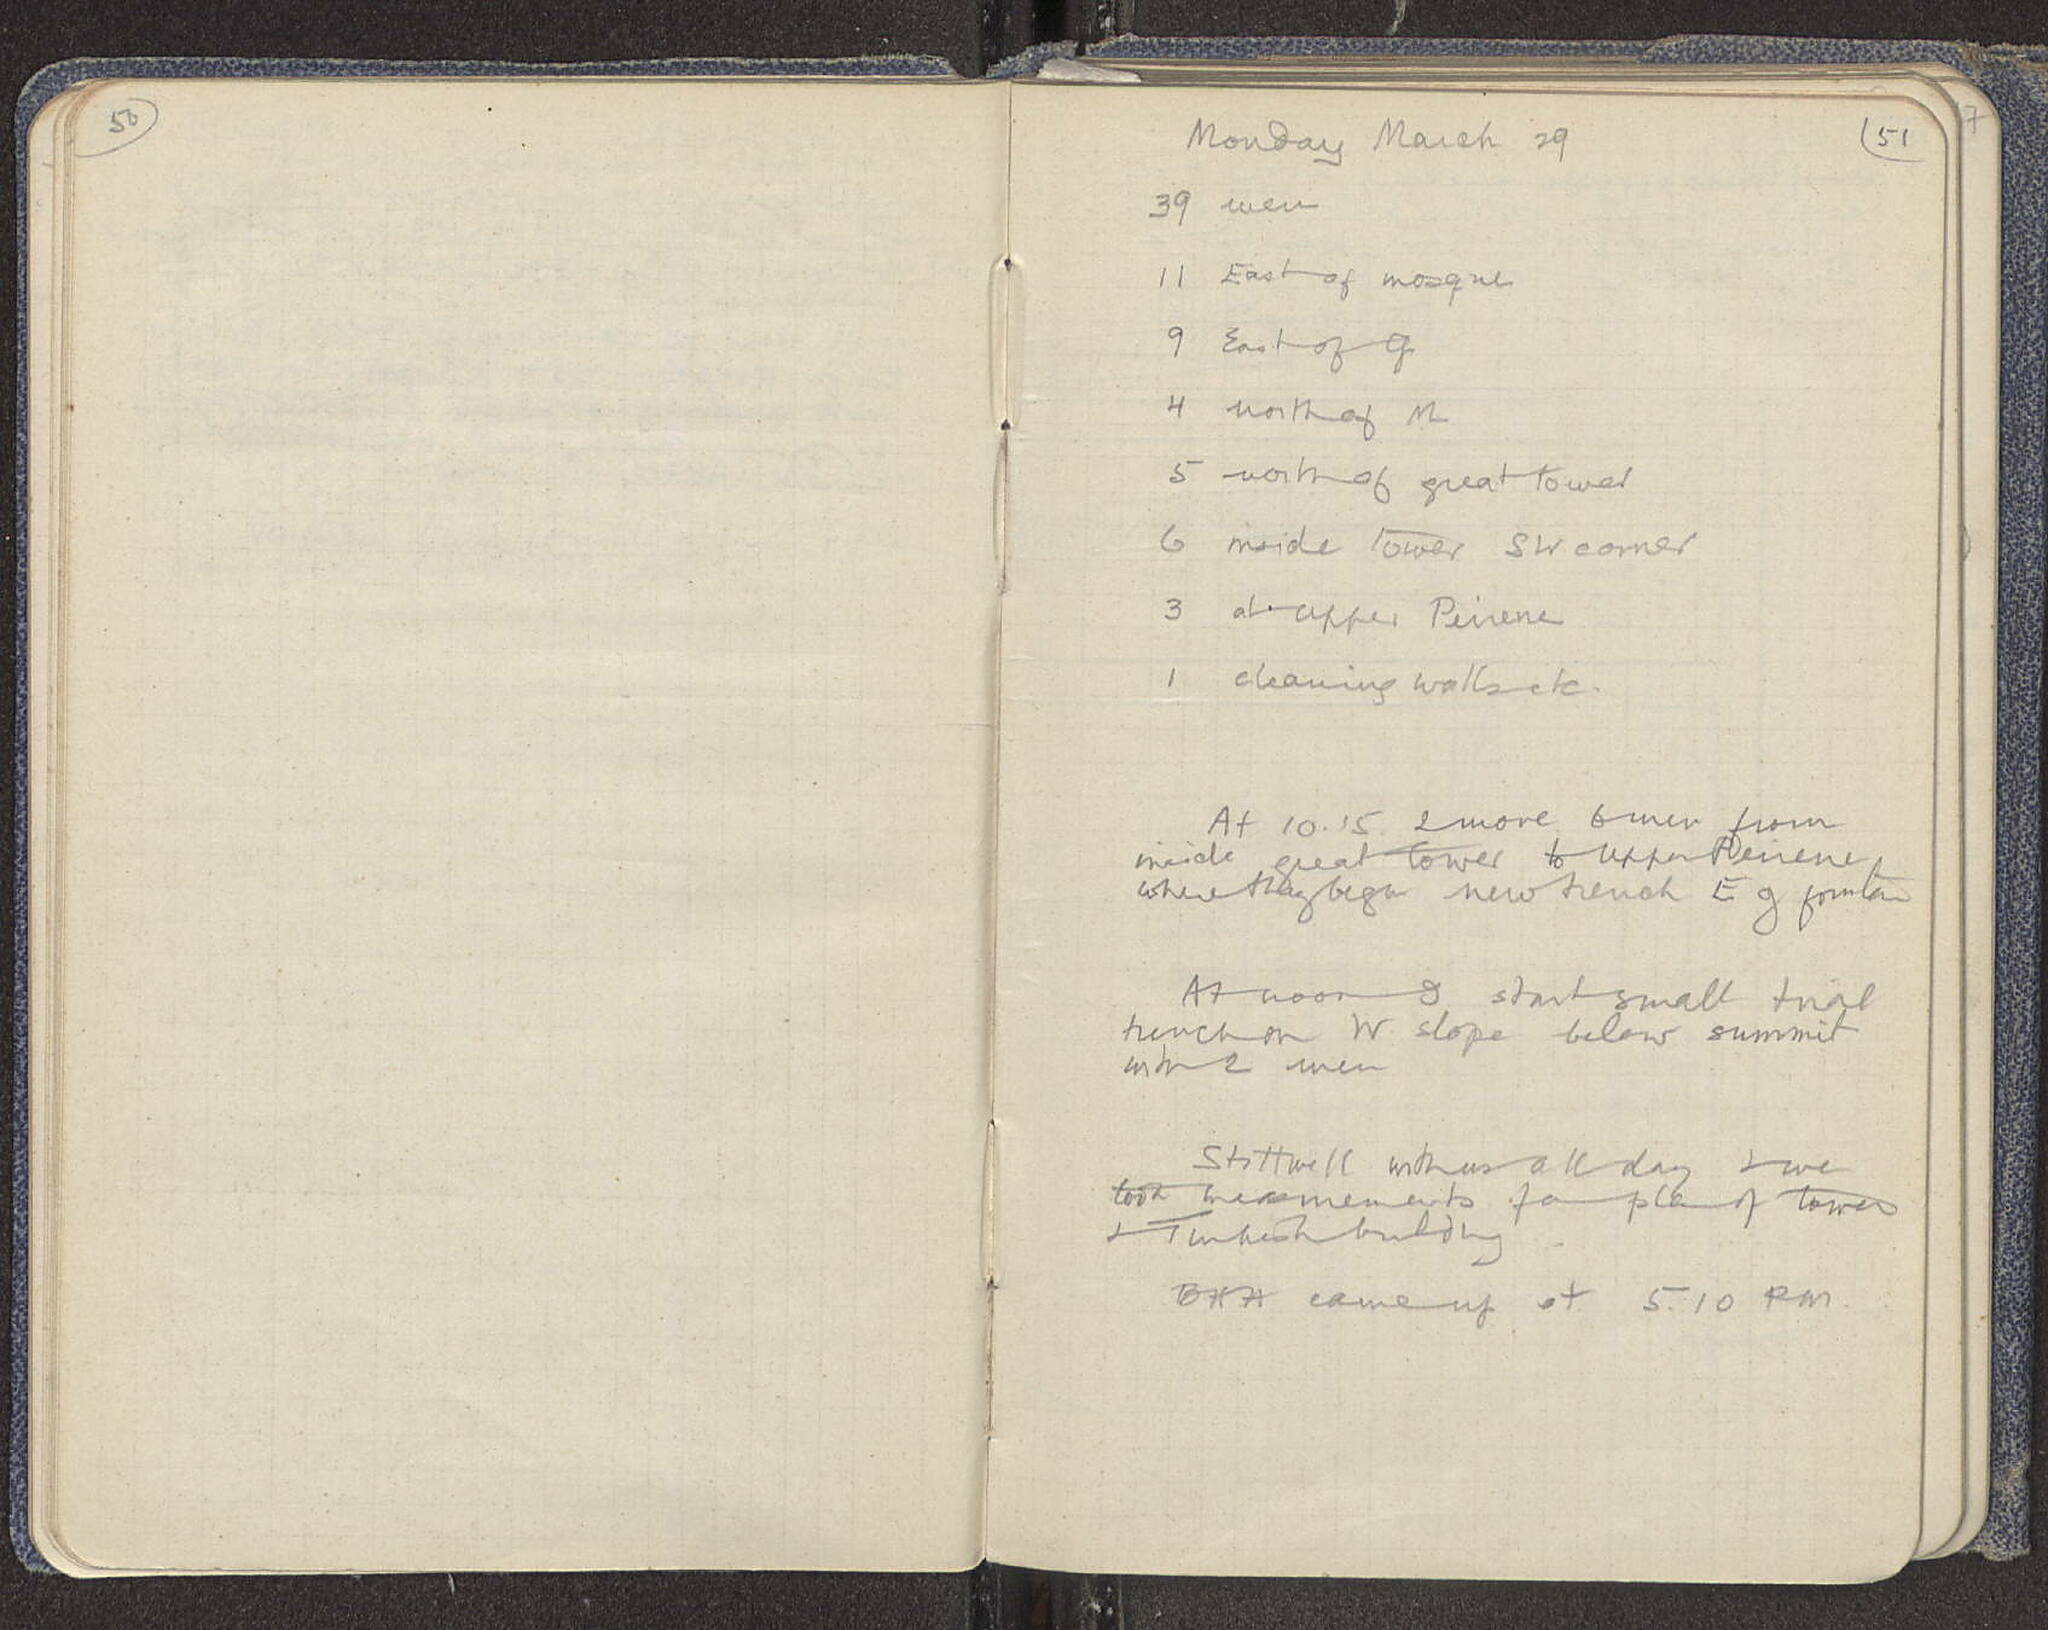 50
51
Monday March 29
39 men
11 East of mosque
9 East of G
4 north of M
5 north of great tower
6 inside tower SW corner
3 at upper Peirene
1 cleaning walls etc.
At 10.15 I move 6 men from
inside great tower to upper Peirene
where they begin new trench E of fountain
At noon I start small trial
trench on W slope below summit
with 2 men
Stillwell with us all day & we
took measurements for plan of tower
& Turkish building
BHH came up at 5.10 PM.